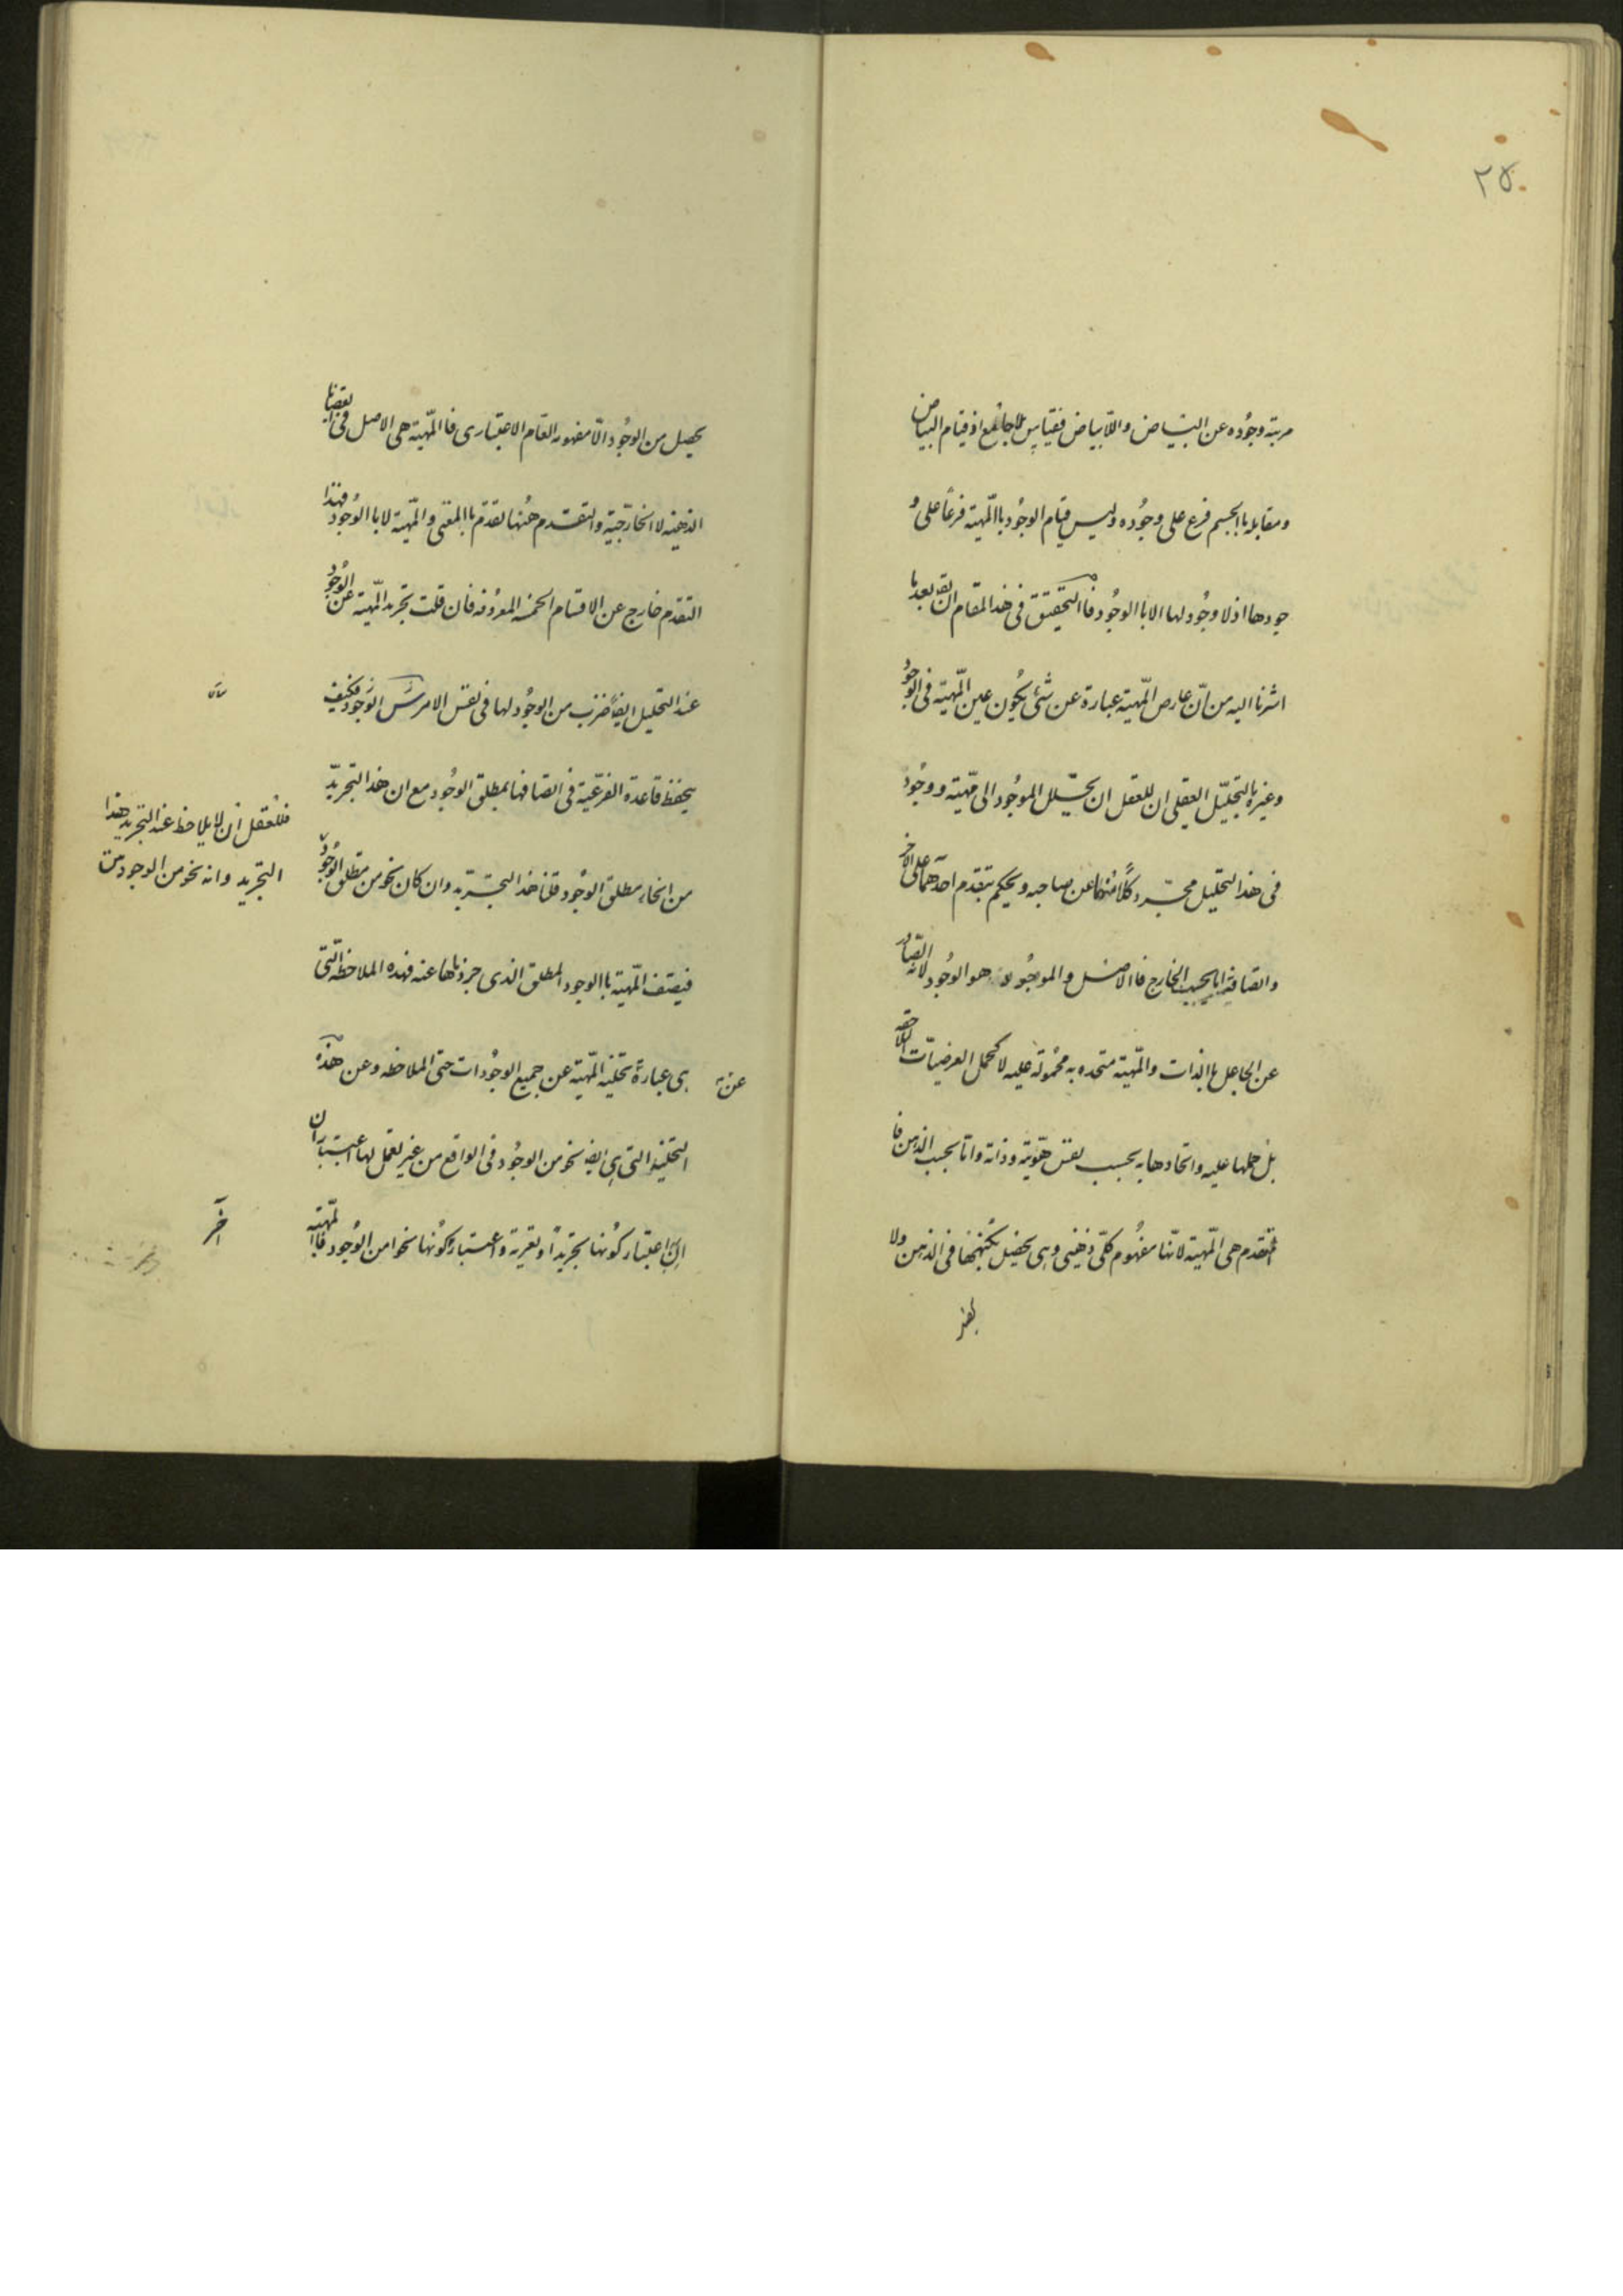 ٢٥٠
مرتبة وجوده عن البياض واللابياض فقياس بلا جامع اذ قيام البياض
ومقابله باالجسم فرع على وجوده وليس قيام الوجود باالمهية فرعاً على و
جودها اذ لا وجود لها الا باالوجود فاالتحقيق فى هذا المقام ان يق بعد ما
اشرنا اليه من انّ عارض المهية عبارة عن شئ يكون عين المهية فى الوجود
وغيره باالتحليل العقلى ان للعقل ان يحلل الموجود الى مهية ووجود
فى هذا التحليل مجرد كلا منهما عن صاحبه ويحكم بتقدم احدهما على الاخر
واتصافه اما بحسب الخارج فاالاصل والموجود هو الوجود لانه الصادر
عن الجاعل باالذات والمهية متحده به محمولة عليه لا كحمل العرضيات اللاحقه
بل حملها عليه واتحادها به بحسب نفس هويته وذاته واما بحسب الذهن فا
المتقدم هى المهية لانها مفهوم كلى ذهنى وهى يحصل بكنهها فى الذهن ولا
يحصل من الوجود الا مفهومه العام الاعتبارى فاالمهية هى الاصل فى القضايا
الذهنيه لا الخارجية والتقدم هنها تقدم باالمعنى والمهية لا باالوجود فهذا
التقدم خارج عن الاقسام الخمسه المعروفه فان قلت تجريد المهية عن الوجود
عند التحليل ايضاً ضرب من الوجود لها فى نفس الامر الوجود فكيف
يحفظ قاعدة الفرعية فى اتصافها بمطلق الوجود مع ان هذا التجريد
من انحاء مطلق الوجود قلنا هذا التجريد وان كان نحو من مطلق الوجود
فللعقل ان لا يلاحظ عند التجريد هذا
التجريد وانه نحو من الوجود
فيتصف المهية باالوجود المطلق الذى جردناها عنه فهذه الملاحظة التى
هى عبارة تخلية المهية عن جميع الوجودات حتى الملاحظه وعن هذه
عن
التخلية التى هى ايضا نحو من الوجود فى الواقع من غير تعمل لها اعتباران
اعتبار كونها تجريداً وتعرية واعتبار كونها نحوا من الوجود فاالمهية
آخر